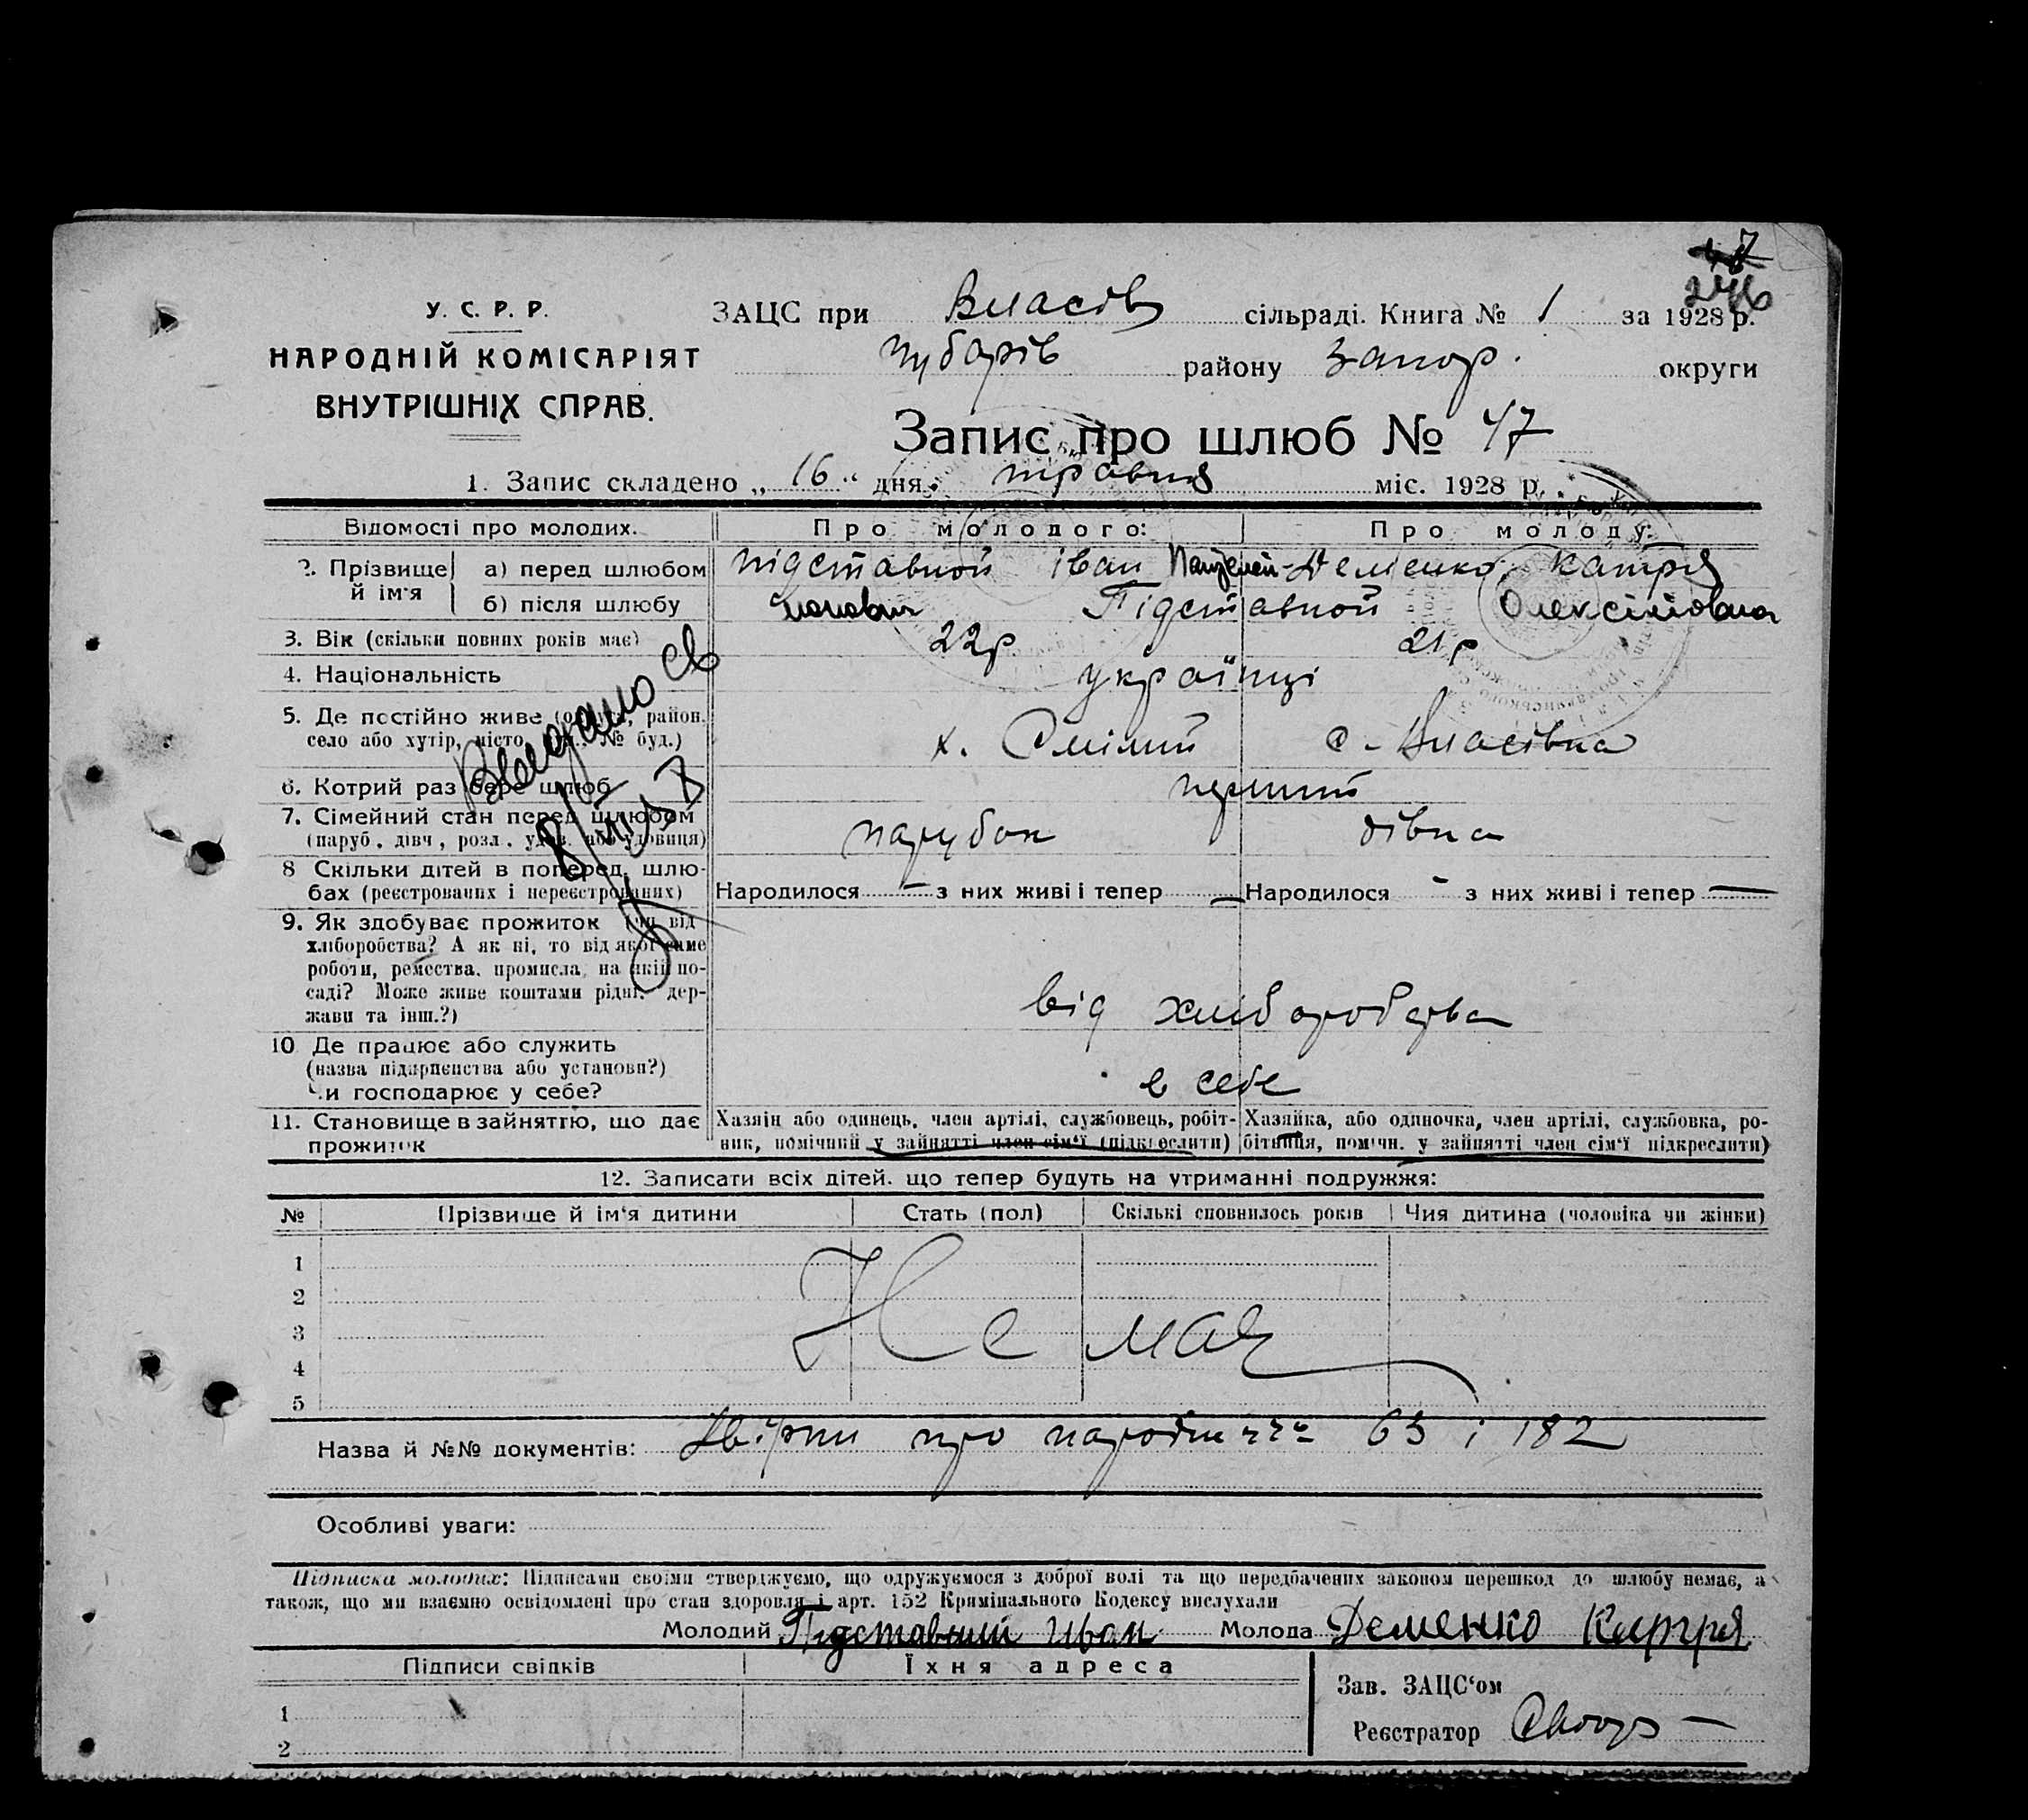 47
246
У. С. Р. Р.
НАРОДНІЙ КОМІСАРІЯТ
ВНУТРІШНІХ СПРАВ.
ЗАЦС при Власів сільраді. Книга № 1 за 1928 р.
Чубарів району Запор. округи
Запис про шлюб № 47
1. Запис складено „ 16 " дня травня міс. 1928 р.
Відомості про молодих. Про молодого: Про молоду:
2. Прізвище й ім'я а) перед шлюбом Підставной Іван Деменко Катря
б) після шлюбу Підставной Олексіївна
3. Вік (скільки повних років має) 22р 21р
4. Національність українці
5. Де постійно живе (округа, район, село або хутір, місто, вул., № буд.) х. Смілий с. Власівка
6. Котрий раз бере шлюб перший
7. Сімейний стан перед шлюбом (паруб., дівч., розл., удов. або удовиця) парубок дівка
8 Скільки дітей в поперед. шлюбах (реєстрованих і нереєстрованих) Народилося – з них живі і тепер – Народилося - з них живі і тепер —
9. Як здобуває прожиток (чи від
хліборобства? А як ні, то від якої саме
роботи, ремества, промисла, на якій по-
саді? Може живе коштами рідні, дер-
жави та інш.?) від хліборобства
10 Де працює або служить
(назва підприємства або установи?)
Чи господарює у себе? в себе
11. Становище в зайняттю, що дає прожиток
Хазяїн або одинець, член артілі, службовець, робіт-
ник, помічний у зайнятті член сім'ї (підкреслити)
Хазяйка, або одиночка, член артілі, службовка, ро-
бітниця, помічн. у зайнятті член сім'ї підкреслити)
Видано св
12. Записати всіх дітей, що тепер будуть на утриманні подружжя:
№ Прізвище й ім'я дитини Стать (пол) Скількі сповнилось років Чия дитина (чоловіка чи жінки)
1
2
3
4
5
Не має
Назва й №№ документів: про народження 63 і 182
Особливі уваги:
Підписка молодих: Підписами своїми стверджуємо, що одружуємося з доброї волі та що передбачених законом перешкод до шлюбу немає, а
також, що ми взаємно освідомлені про стан здоровля і арт. 152 Кримінального Кодексу вислухали
Молодий Підставний Иван Молода Деменко Катря
Підписи свідків Їхня адреса
Зав. ЗАЦС'ом
1
Реєстратор
2